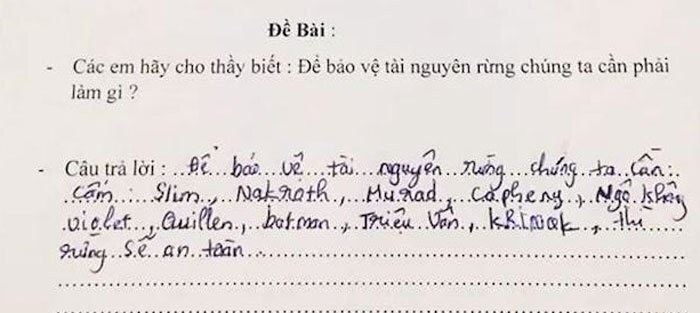 Đề Bài :
- Các em hãy cho thầy biết : Để bảo vệ tài nguyên rừng chúng ta cần phải
làm gì ?
- Câu trả lời : Để bảo vệ tài nguyên rừng chúng ta cần:
Cấm: Slim, Nakroth, Murad, Capheny, Ngộ Không
violet, Quillen, batman, Triệu Vân, KRIXOK, thì
rừng sẽ an toàn